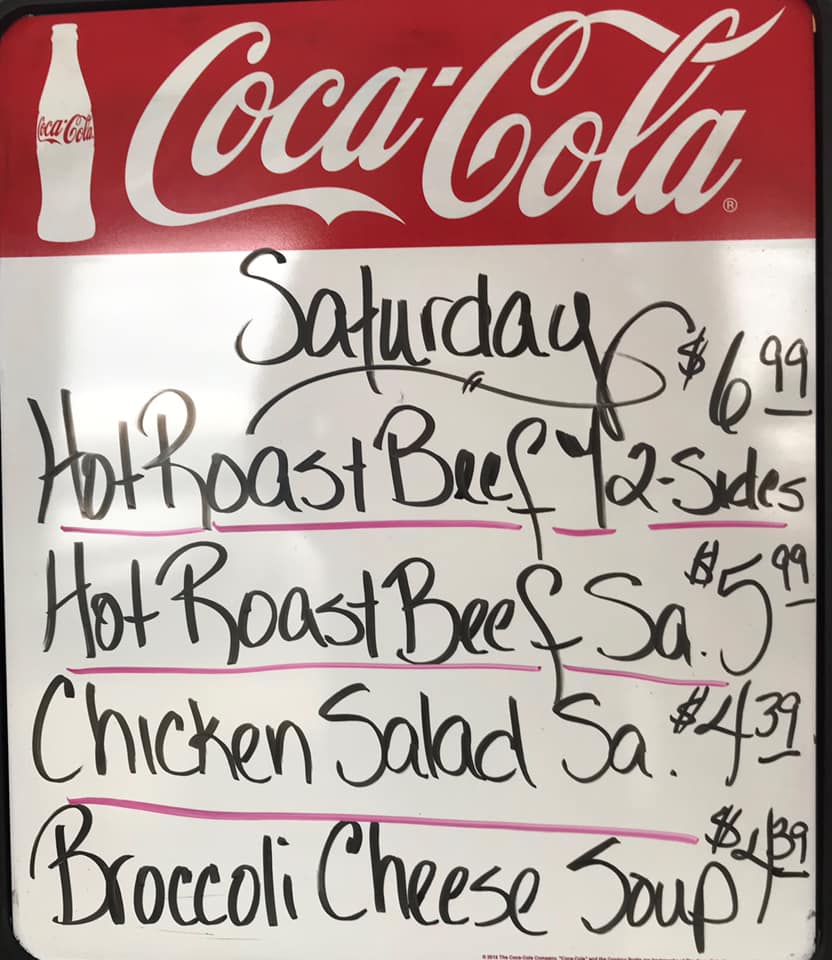 Coca-Cola
Coca-Cola®
Saturday
$6.99
Hot Roast Beef y 2-Sides
$5.99
Hot Roast Beef Sa.
Chicken Salad Sa. $4.39
$4.39
Broccoli Cheese Soup